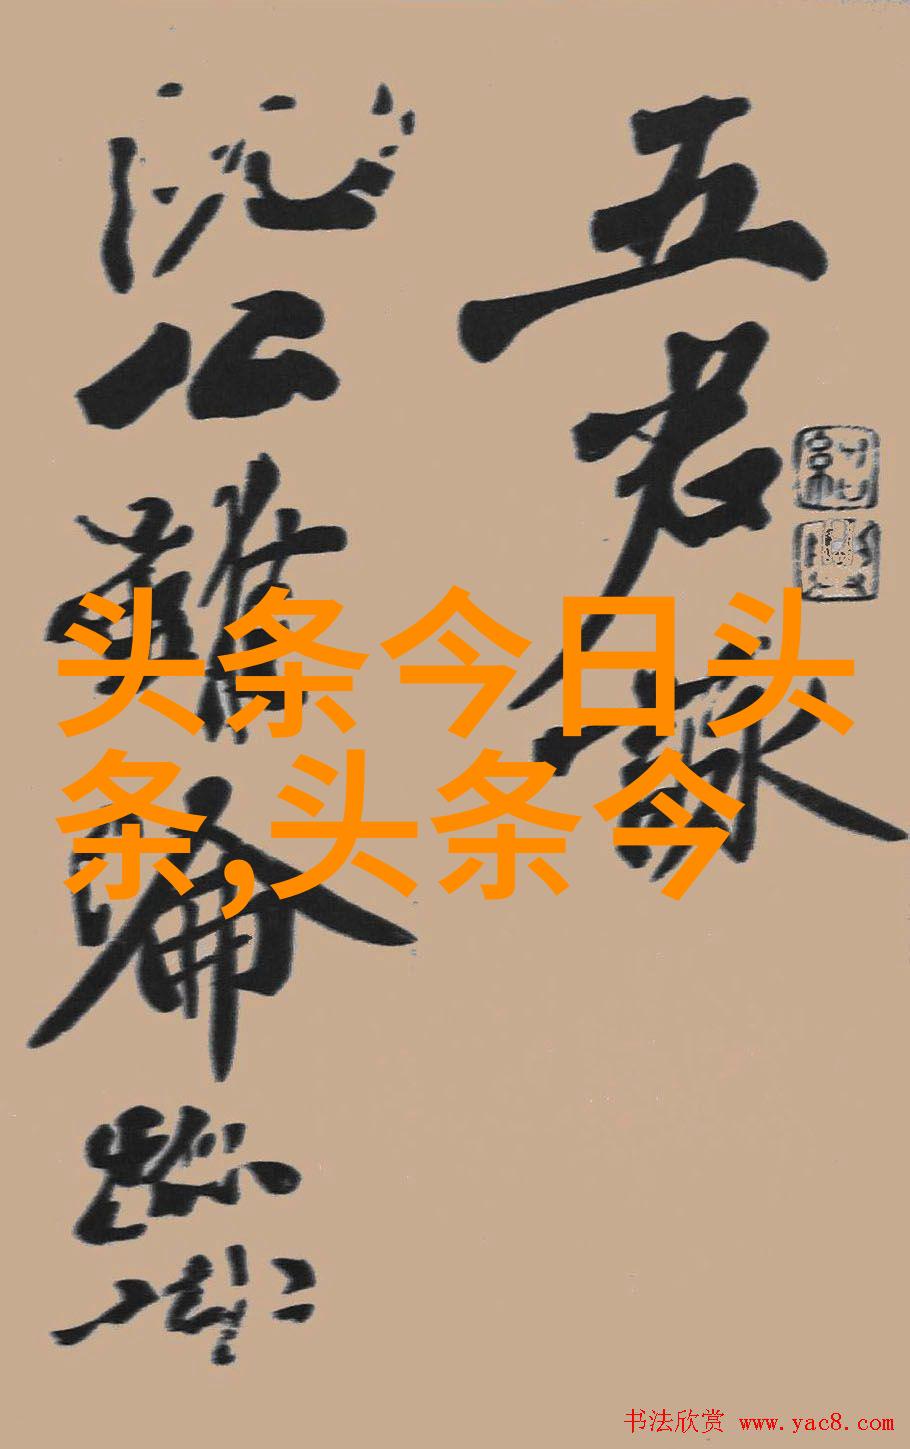 五君詠
阮公雖淪跡
头条今日头
条,头条今
书法欣赏 www.yac8.com